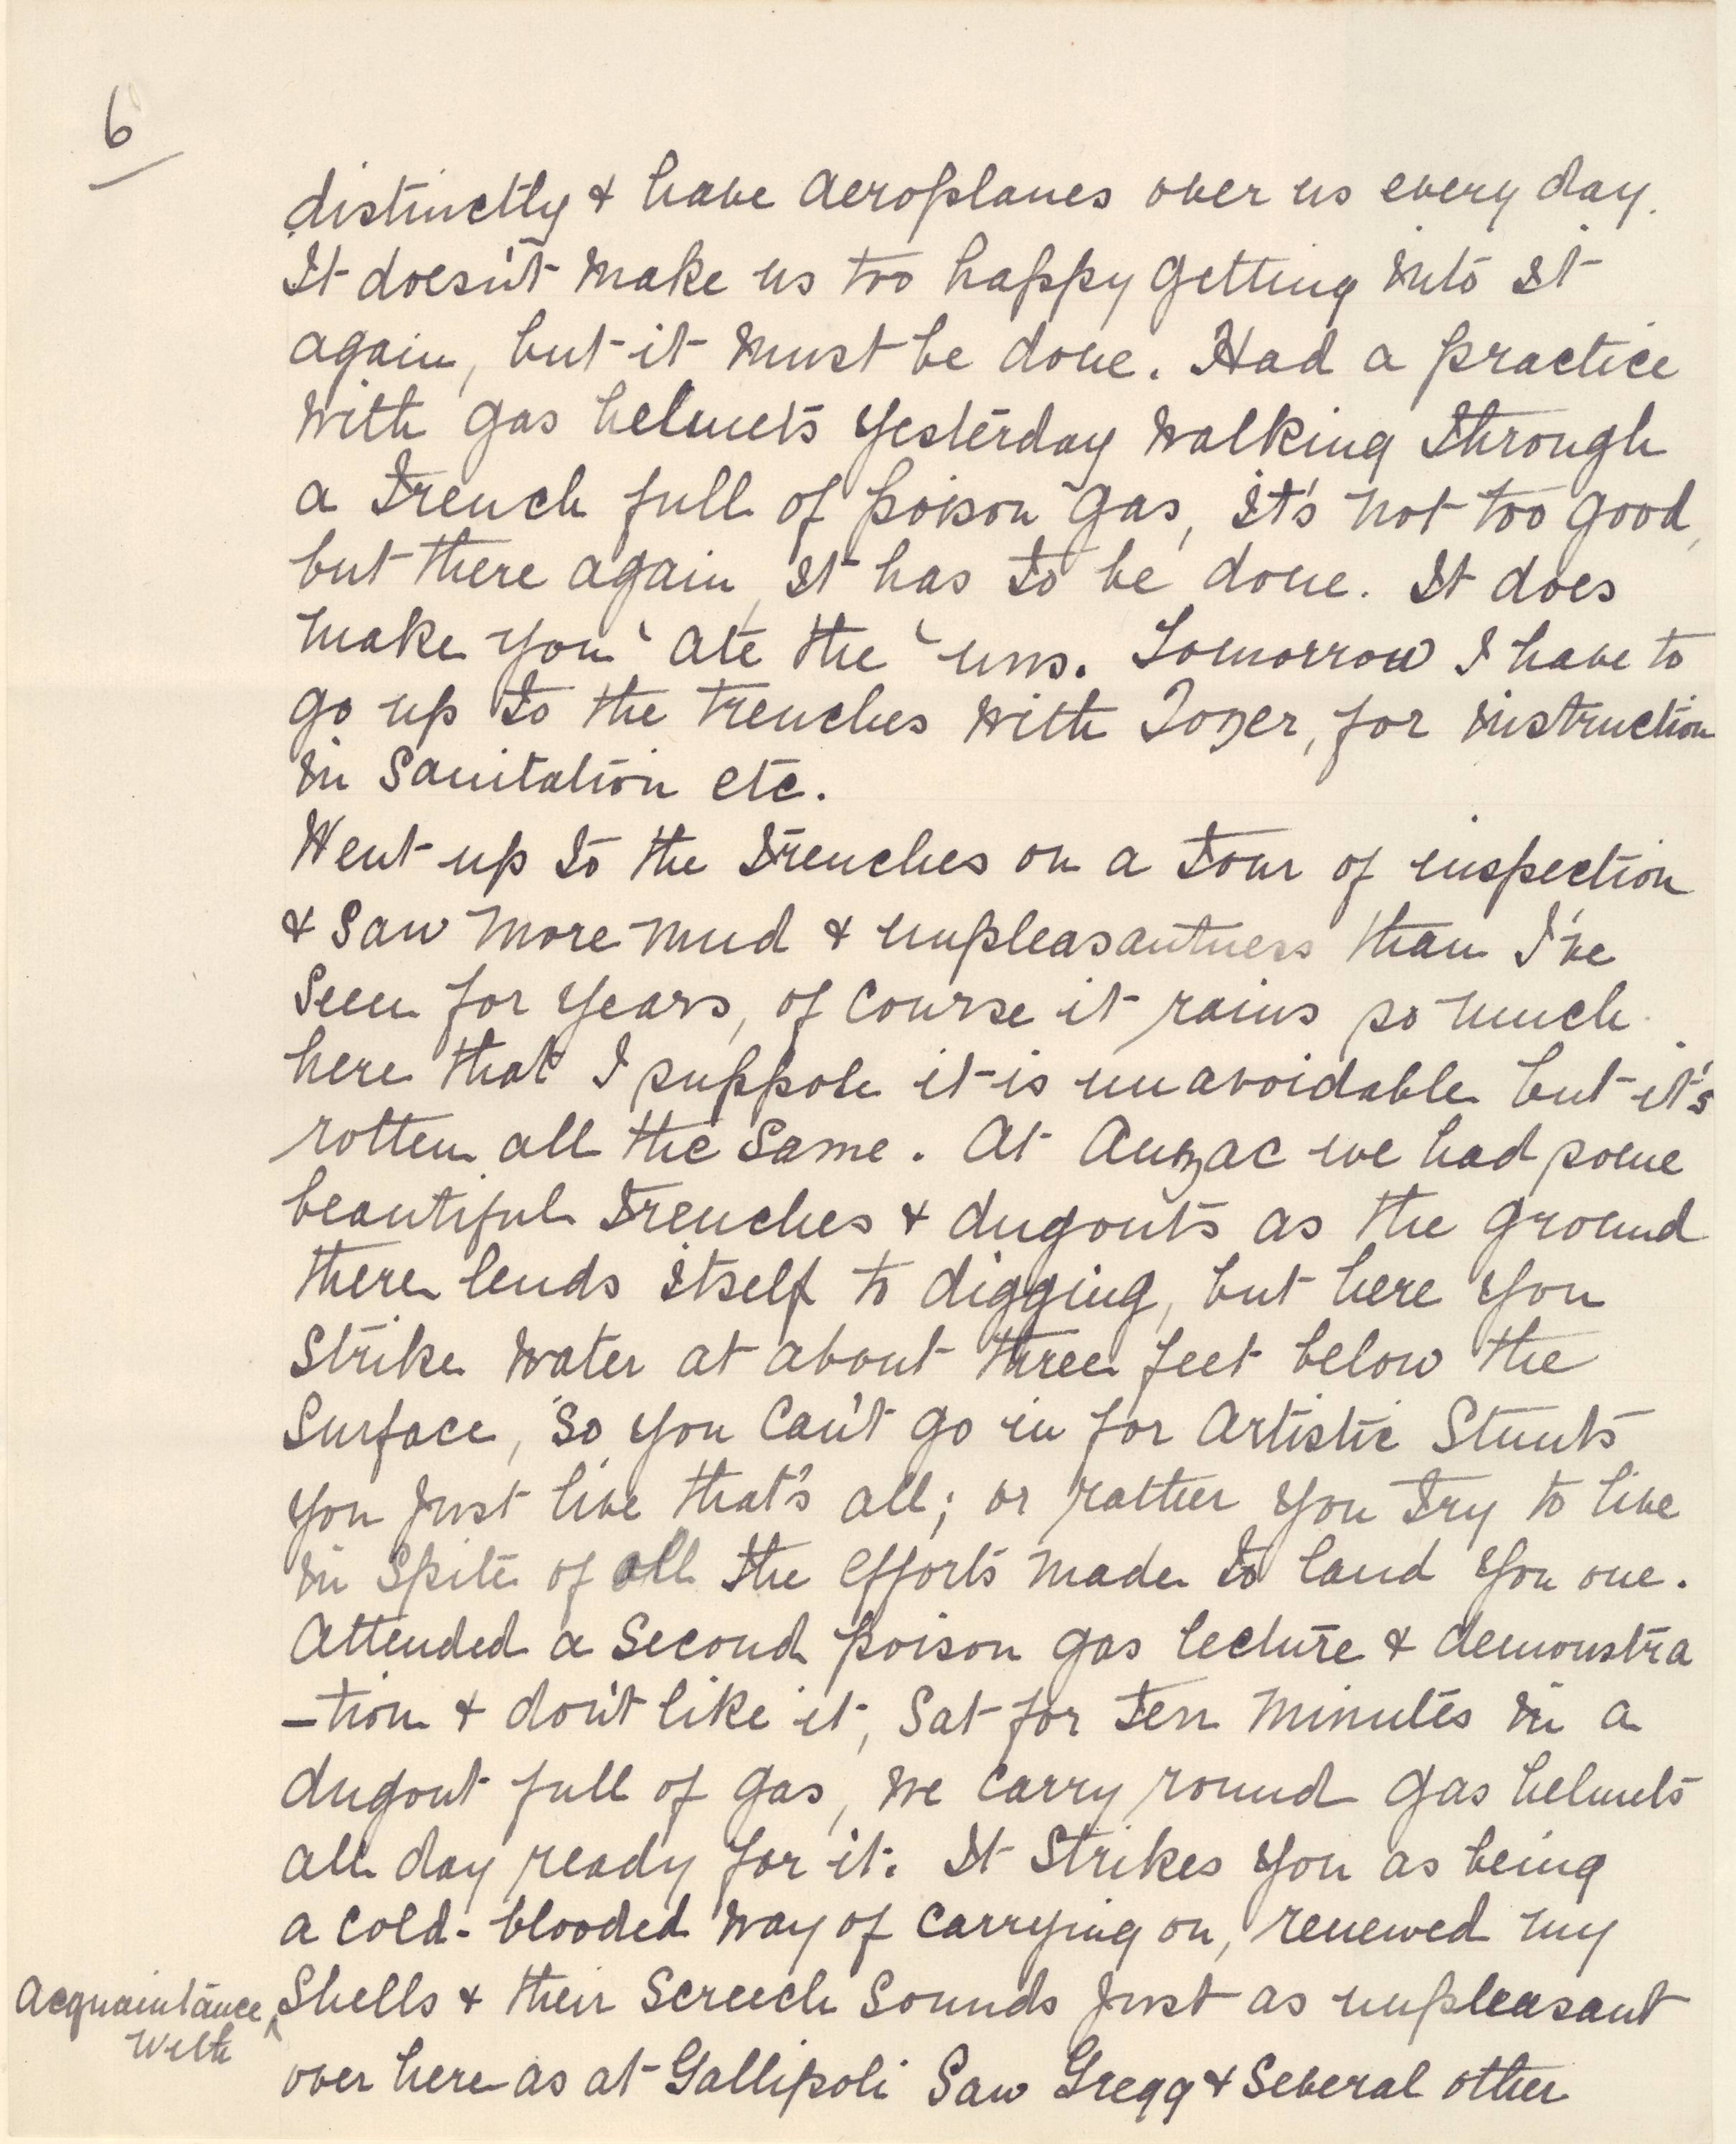 6
distinctly & have aeroplanes over us every day.
It doesn't make us too happy getting into it
again, but it must be done. Had a practice
with gas helmets yesterday walking through
a trench full of poison gas, it's not too good,
but there again, it has to be done. It does
make you 'ate the 'uns. Tomorrow I have to
go up to the trenches with Tozer, for instruction
in Sanitation etc.
Went up to the trenches on a tour of inspection
& saw more mud & unpleasantness than I've
seen for years, of course it rains so much
here that I suppose it is unavoidable but it's
rotten all the same. At Anzac we had some
beautiful trenches & dugouts as the ground
there lends itself to digging, but here you
strike water at about three feet below the
surface, so you can't go in for artistic stunts
you just live that's all; or rather you try to live
in spite of all the efforts made to land you one.
Attended a second poison gas lecture & demonstra
-tion & don't like it, sat for ten minutes in a
dugout full of gas, we carry round gas helmets
all day ready for it. It strikes you as being
a cold-blooded way of carrying on, renewed my
acquaintance with
shells & their screech sounds just as unpleasant
over here as at Gallipoli Saw Gregg & several other